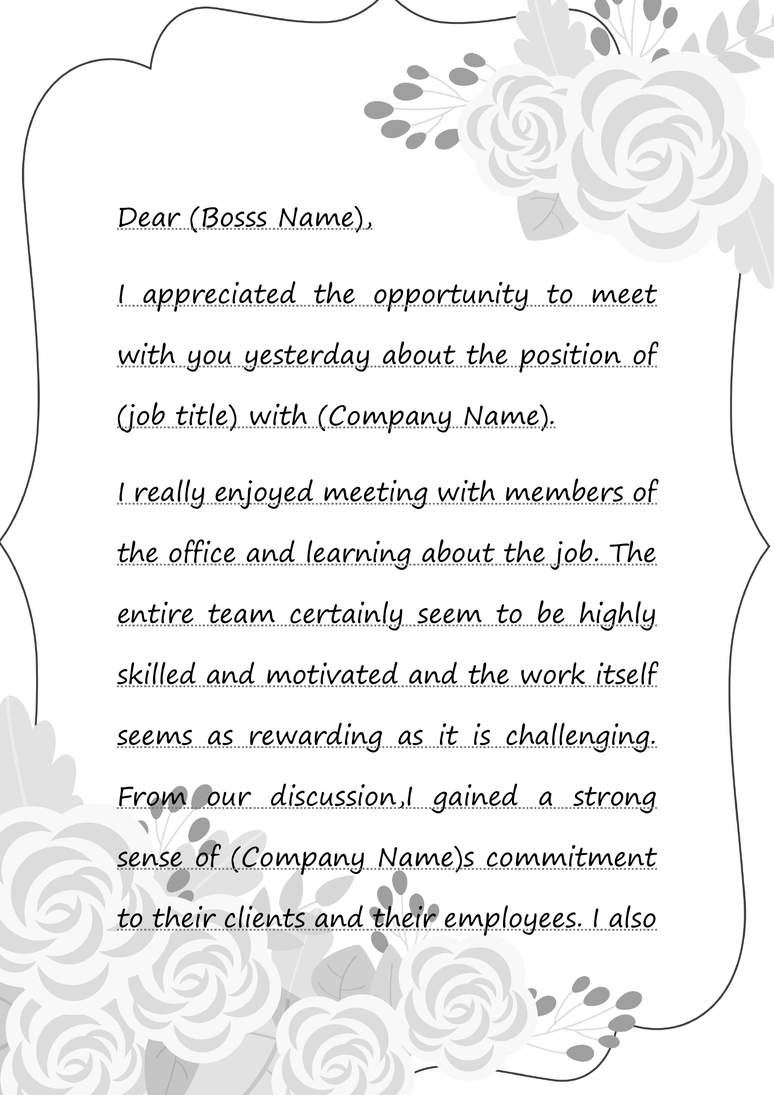 Dear (Bosss Name),
I appreciated the opportunity to meet
with you yesterday about the position of
(job title) with (Company Name).
I really enjoyed meeting with members of
the office and learning about the job. The
entire team certainly seem to be highly
skilled and motivated and the work itself
seems as rewarding as it is challenging.
From our discussion,I gained a strong
sense of (Company Name)s commitment
to their clients and their employees. I also